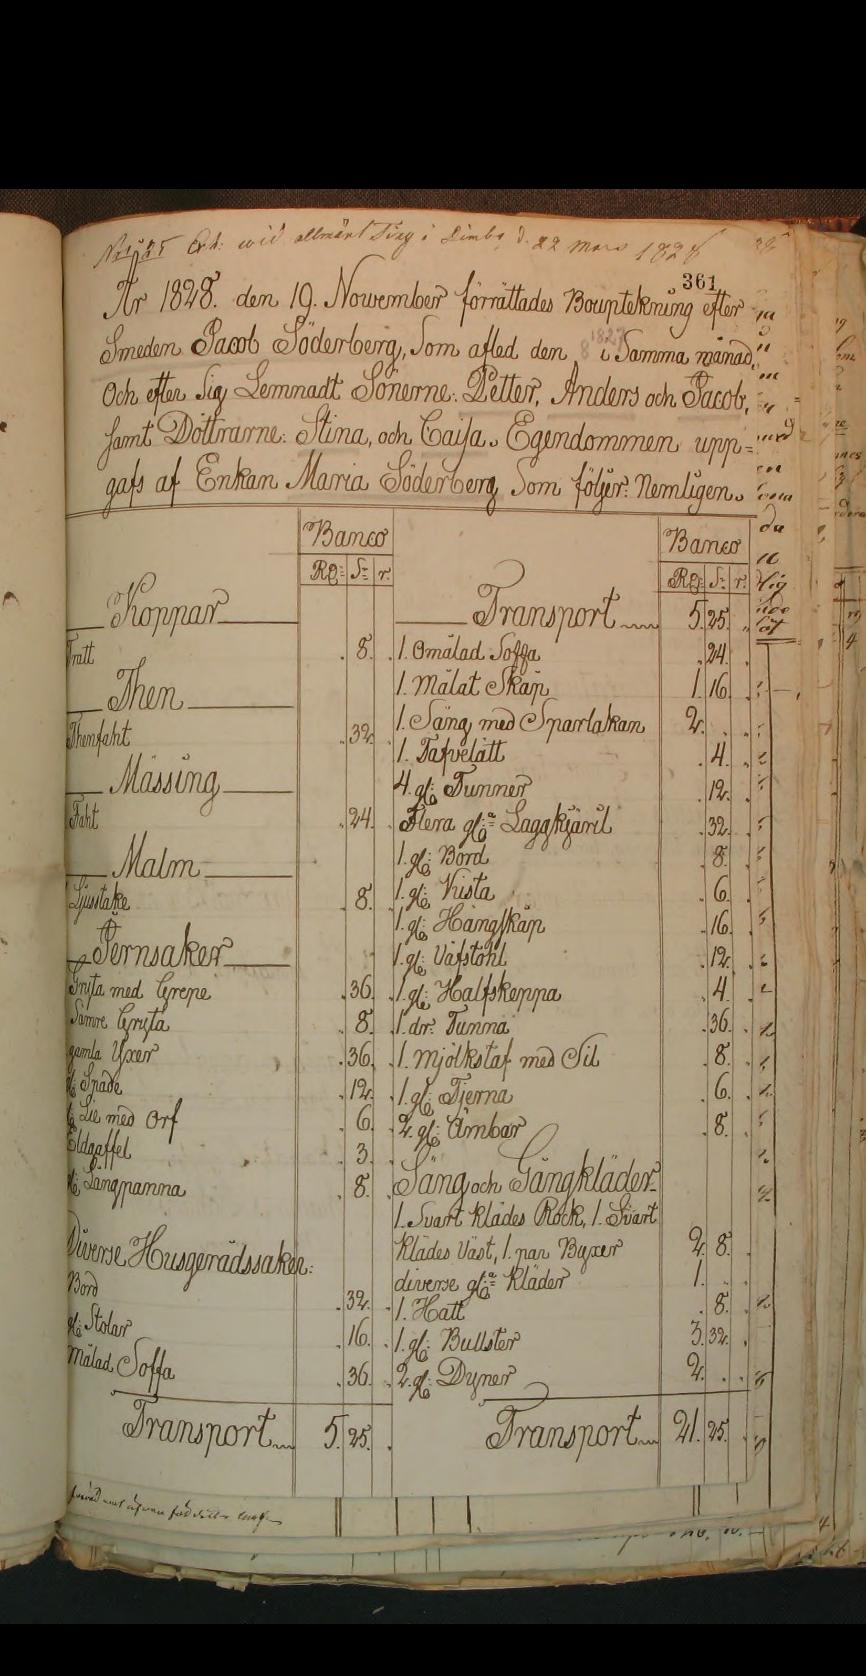 Ink: wid allmänt Ting i Limbo d. 22 Mars 1828
361
År 1828. den 19. Nowember förrättades Bouptekning efter
Smeden Jacob Söderberg, Som afled den 8 i Samma månad,
1827
Och efter Sig Lemnadt Sönerne: Petter, Anders och Jacob,
samt Döttrarne: Stina, och Caisa. Egendommen upp=
gafs af Enkan Maria Söderberg Som följer: Nemligen.
Banco
RD: S: r.
Koppar
Tratt . 8. .
Then
Thenfaht . 32. .
Mässing
Faht . 24. .
Malm
Ljusstake . 8. .
Jernsaker
Gryta med Grepe . 36. .
Sämre Gryta . 8. .
gamla Yxer . 36. .
gl: Spade . 12. .
gl: Lie med Orf . 6. .
Eldgaffel . 3. .
gl: Långpanna . 8. .
Diverse Husgerådssaker:
Bord . 32. .
gl: Stolar . 16. .
Målad Soffa . 36. .
Transport 5. 25. .
Banco
RD: S: r.
Transport 5. 25. .
1. Omålad Soffa . 24. .
1. Målat Skåp 1. 16. .
1. Säng med Sparlakan 2. . .
1. Tafvelätt . 4. .
4. gl: Tunner . 12. .
Flera gla: Laggkjäril . 32. .
1. gl: Bord . 8. .
1. gl: Kista . 6. .
1. gl: Hängskåp . 16. .
1. gl: Väfstohl . 12. .
1. gl: Halfskeppa . 4. .
1. dr: Tunna . 36. .
1. Mjölkstaf med Sil . 8. .
1. gl: Tjerna . 6. .
2. gl: Ämbar . 8. .
Säng och Gångkläder
1. Svart Klädes Rock, 1. Svart
Klädes Väst, 1. par Byxer 2. 8. .
diverse gla: Kläder 1. . .
1. Hatt . 8. .
1. gl: Bullster 3. 32. .
2. gl: Dyner 2. . .
Transport 21. 25. .